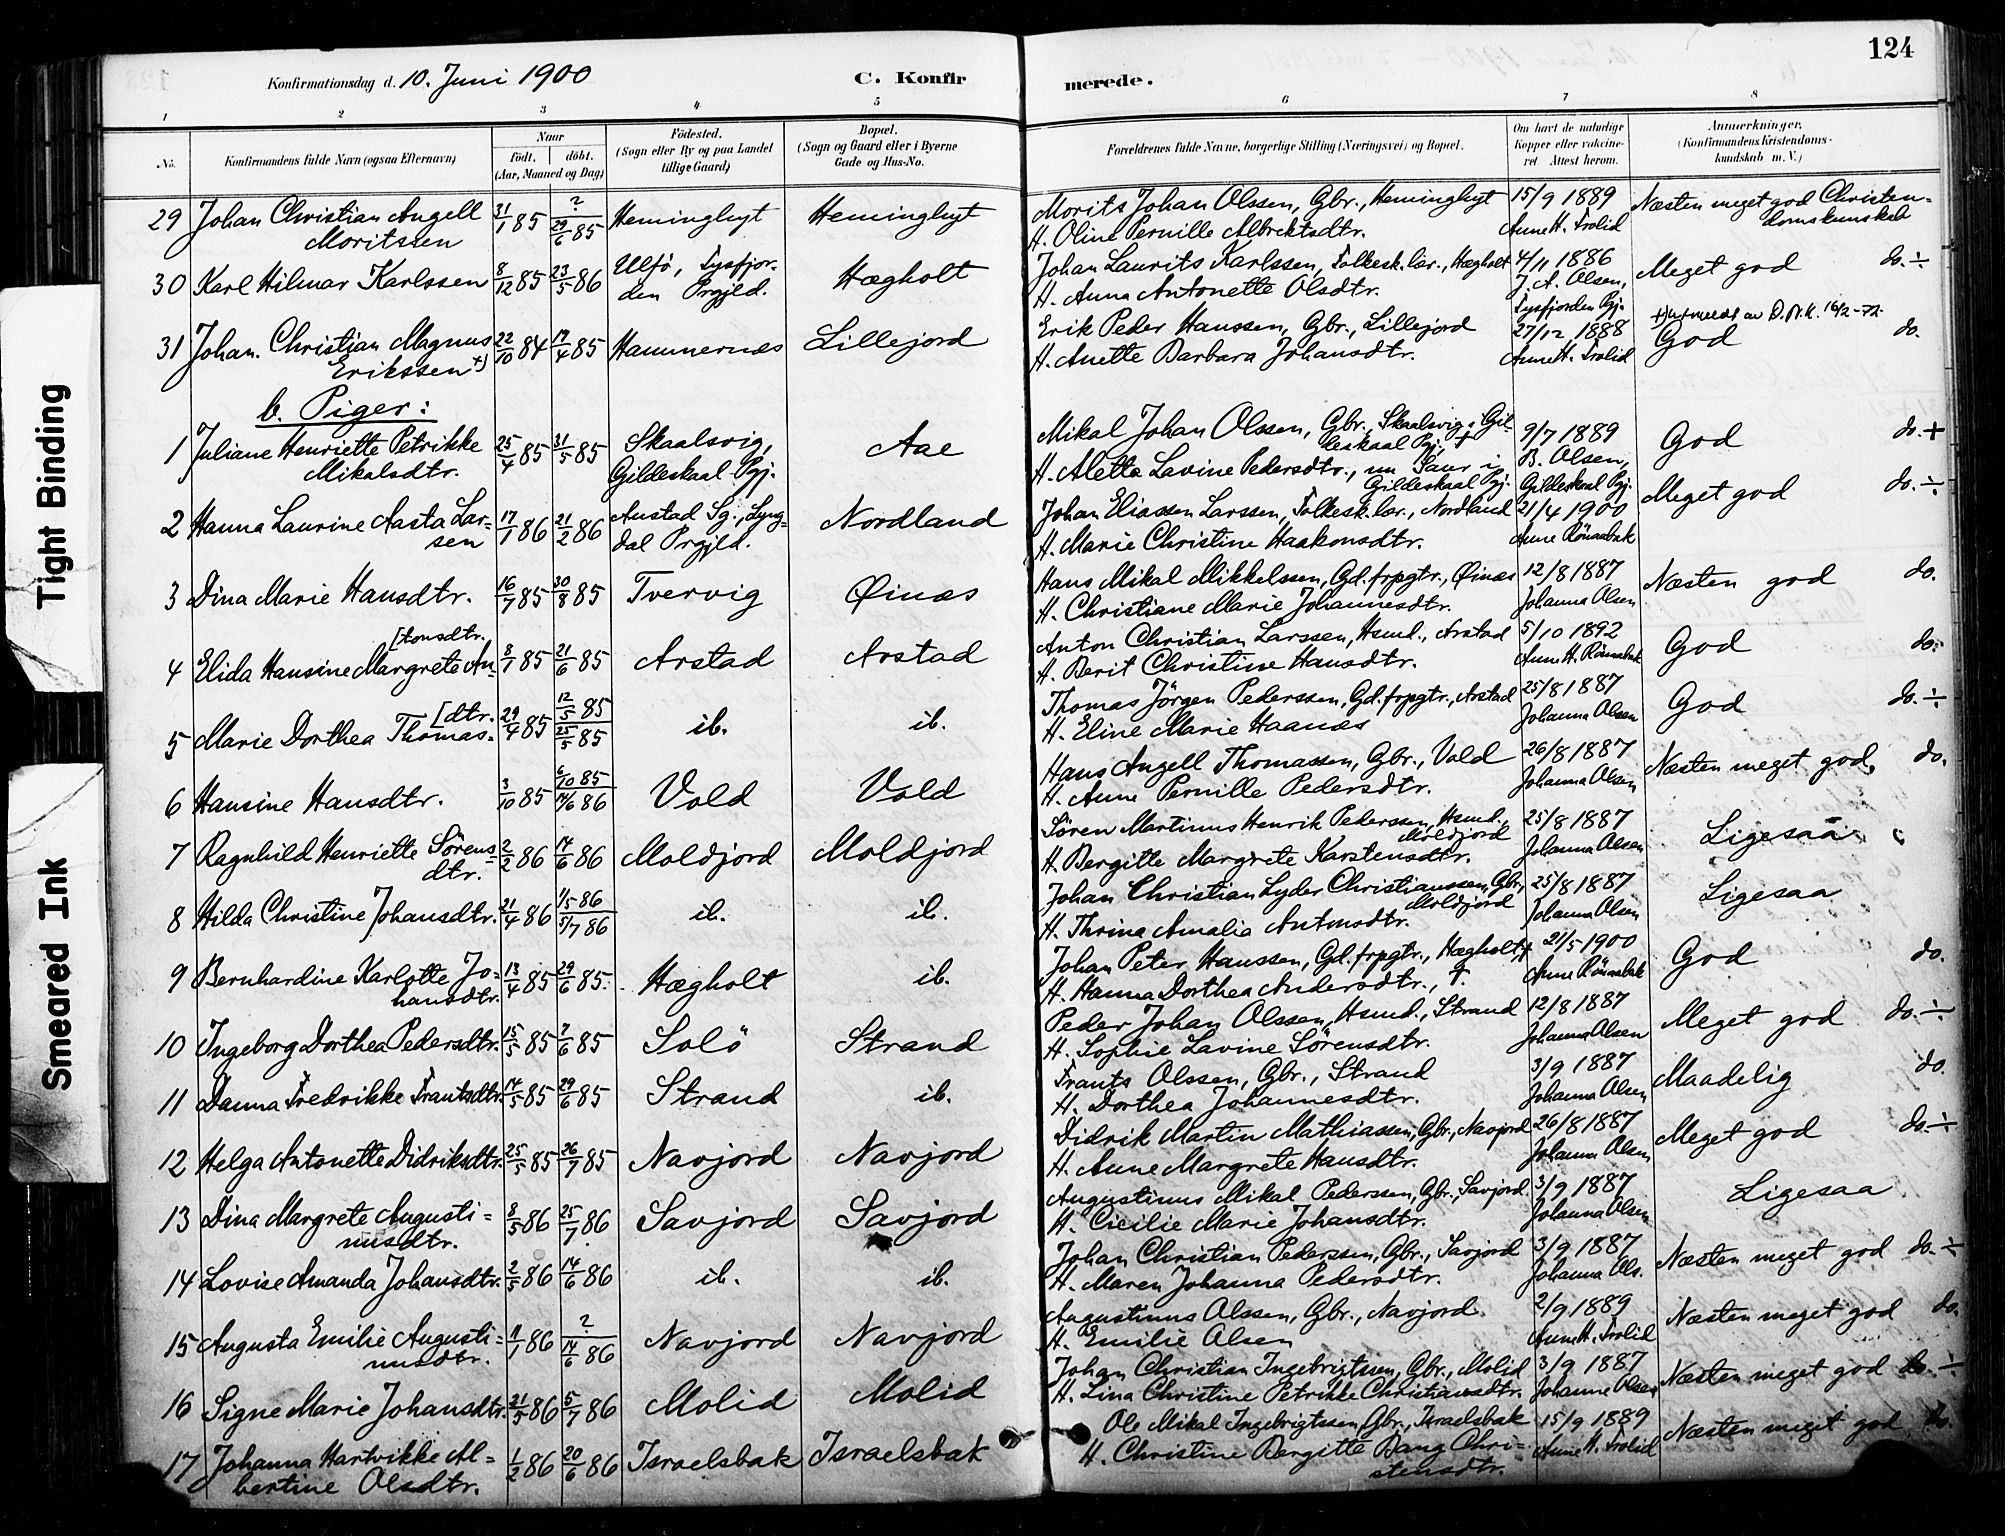 124
Konfirmationsdag d. 10. Juni 1900 C. Konfirmerede.
1 2 3 4 5 6 7 8
No. Konfirmandens fulde Navn (ogsaa Efternavn) Naar født. døbt. (Aar, Maaned og Dag) Fødested. (Sogn eller By og paa Landet tillige Gaard) Bopæl. (Sogn og Gaard eller i Byerne Gade og Hus-No.) Forældrenes fulde Navne, borgerlige Stilling (Næringsvei) og Bopæl. Om havt de naturlige Kopper eller vaccineret Attest herom. Anmerkninger. (Konfirmandens Kristendomskundskab m. V.)
29 Johan Christian Angell Moritssen 31/1 85 ? 29/6 85 Heminghyt Heminghyt Morits Johan Olssen, Gbr., Heminghyt 15/9 1889 Næsten meget god Christendomskundskab
H. Oline Pernille Albrektsdtr. Anne H. Trolid
30 Karl Hilmar Karlssen 8/12 85 23/5 86 Ulfø, Tysfjorden Prgjld. Hægholt Johan Laurits Karlssen, Folkesk.lær., Hægholt 4/11 1886 Meget god do. ÷
H. Anna Antonette Olsdtr. J. A. Olsen, Tysfjorden Pgj.
31 Johan Christian Magnus Erikssen +) 22/10 84 17/4 85 Hammernæs Lillejord Erik Peder Hanssen, Gbr., Lillejord 27/12 1888 +) utmeldt av D.N.K. 16/2-72. God do.
H. Anette Barbara Johansdtr. Anne H. Trolid
b. Piger:
1 Juliane Henriette Petrikke Mikalsdtr. 25/4 85 31/5 85 Skaalsvig, Gildeskaal Pgj. Aae Mikal Johan Olssen, Gbr., Skaalsvig i Gildeskaal Pgj. + 9/7 1889 God do. +
H. Aletta Lavine Pedersdtr., nu Saur i Gildeskaal Pgj. B. Olsen, Gildeskaal Pgj.
2 Hanna Laurine Aasta Larssen 17/1 86 21/2 86 Austad Sg., Lyngdal Prgjld. Nordland Johan Eliassen Larssen, Folkesk.lær., Nordland 21/4 1900 Meget god do. ÷
H. Marie Christine Haakonsdtr. Anne Rönaabak
3 Dina Marie Hansdtr. 16/7 85 30/8 85 Tvervig Øinæs Hans Mikal Mikkelssen, Gd.frpgtr., Øinæs 12/8 1887 Næsten god do.
H. Christiane Marie Johannesdtr. Johanna Olsen
4 Elida Hansine Margrete An[tonsdtr. 8/1 85 21/6 85 Arstad Arstad Anton Christian Larssen, Hsmd., Arstad 5/10 1892 God do.
H. Berit Christine Hansdtr. Anne H. Rönaabak
5 Marie Dorthea Thomas[dtr. 29/4 85 12/5 85 25/5 85 ib. ib. Thomas Jörgen Pederssen, Gd.frpgtr., Arstad 25/8 1887 God do. ÷
H. Eline Marie Haanæs Johanna Olsen
6 Hansine Hansdtr. 3/10 85 6/10 85 14/6 86 Vold Vold Hans Angell Thomassen, Gbr., Vold 26/8 1887 Næsten meget god do.
H. Anne Pernille Pedersdtr. Johanna Olsen
7 Ragnhild Henriette Sörensdtr. 2/2 86 14/6 86 Moldjord Moldjord Sören Martinus Henrik Pederssen, Hsmd., Moldjord 25/8 1887 Ligesaa
H. Bergitte Margrete Karstensdtr. Johanna Olsen
8 Hilda Christine Johansdtr. 21/4 86 1/5 86 5/7 86 ib. ib. Johan Christian Lyder Christianssen, Gbr., Moldjord 25/8 1887 Ligesaa
H. Thrina Amalia Antonsdtr. Johanna Olsen
9 Bernhardine Karlotte Johansdtr. 13/4 85 29/6 85. Hægholt ib. Johan Peter Hanssen, Gd.frpgtr., Hægholt, † 21/5 1900 God do.
H. Hanna Dorthea Andersdtr., †. Anne Rönaabak
10 Ingeborg Dorthea Pedersdtr. 15/5 85 7/6 85 Solö Strand Peder Johan Olssen, Hsmd., Strand 12/8 1887 Meget god do. ÷
H. Sophie Lavine Sörensdtr. Johanna Olsen
11 Danna Fredrikke Frantsdtr. 14/5 85 29/6 85 Strand ib. Frants Olssen, Gbr., Strand 3/9 1887 Maadelig do.
H. Dorthea Johannesdtr. Johanna Olsen
12 Helga Antonette Didriksdtr. 25/5 85 26/7 85 Navjord Navjord Didrik Martin Mathiassen, Gbr., Navjord 26/8 1887 Meget god do. ÷
H. Anne Margrete Hansdtr. Johanna Olsen
13 Dina Margrete Augustinusdtr. 8/5 86 25/7 86 Savjord Savjord Augustinus Mikal Pederssen, Gbr., Savjord 3/9 1887 Ligesaa
H. Cicilie Marie Johansdtr. Johanna Olsen
14 Lovise Amanda Johansdtr. 2/5 86 14/6 86 ib. ib. Johan Christian Pederssen, Gbr., Savjord 3/9 1887 Næsten meget god do. ÷
H. Maren Johanna Pedersdtr. Johanna Ols.
15 Augusta Emilie Augustinusdtr. 1/1 86 ? 14/6 86 Navjord Navjord Augustinus Olssen, Gbr., Navjord 2/9 1889 Næsten meget god do.
H. Emilie Olsen Anne H. Trolid
16 Signe Marie Johansdtr. 21/5 86 5/7 86 Molid Molid Johan Christian Ingebrigtssen, Gbr., Molid 3/9 1887 Næsten meget god do. ÷
H. Lina Christine Petrikke Christiansdtr. Johanne Olsen
17 Johanna Hartvikke Albertine Olsdtr. 1/2 86 20/6 86 Israelsbak Israelsbak Ole Mikal Ingebrigtssen, Gbr., Israelsbak 15/9 1889 Næsten meget god do.
H. Christine Bergitte Bang Christensdtr. Anne H. Trolid
Tight Binding
Smeared Ink